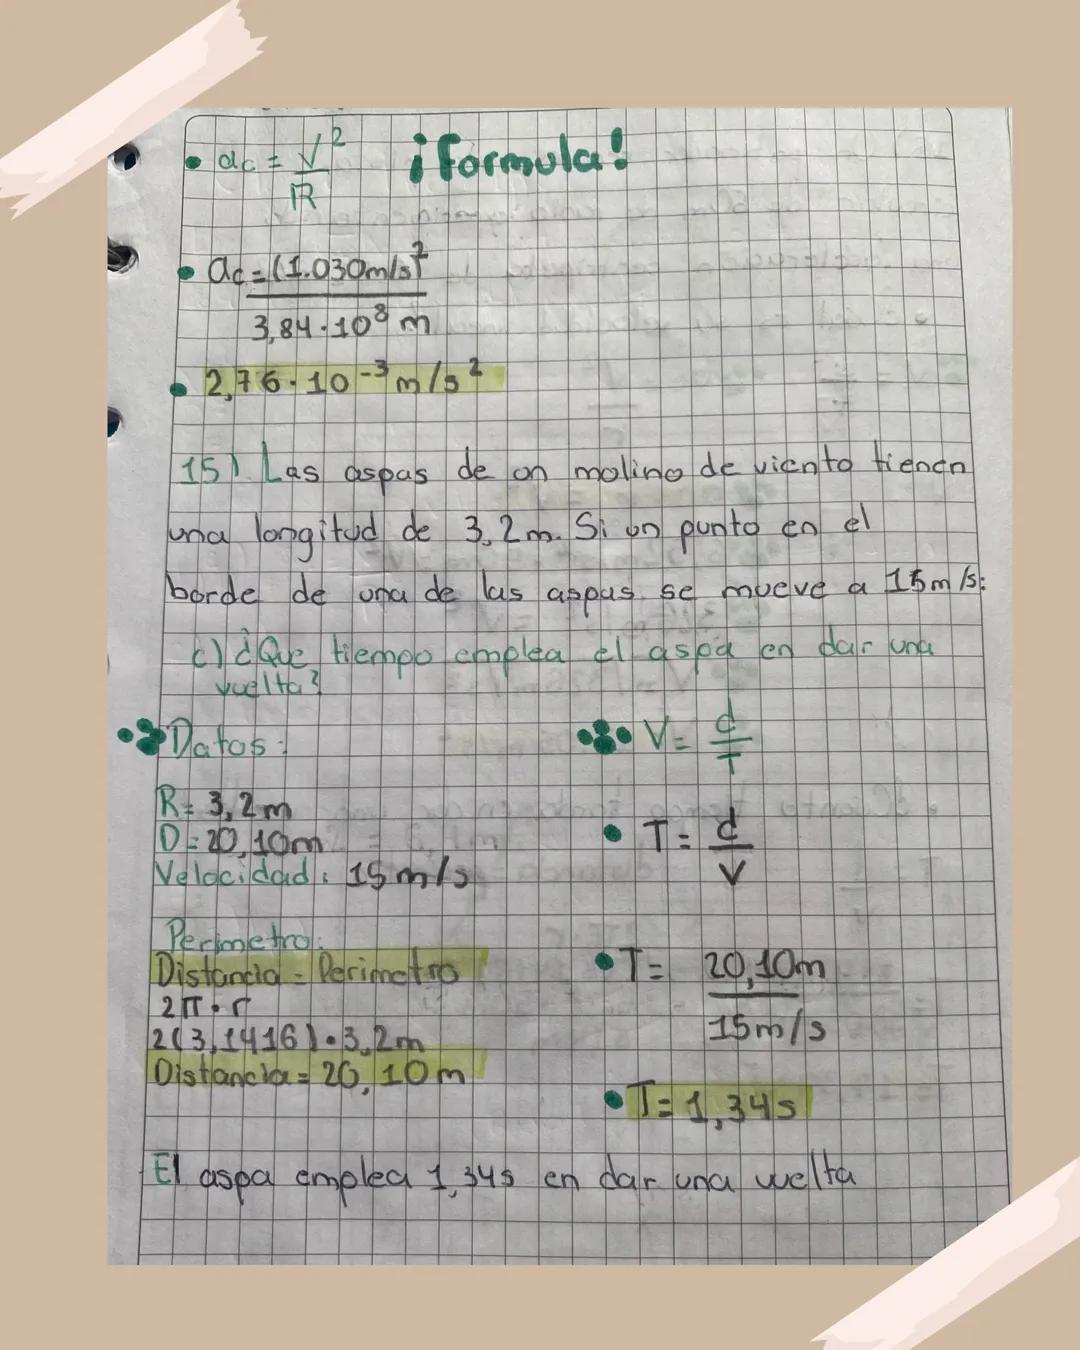 • ac = V² / R ¡Formula!
• ac = (1.030m/s)² / 3,84·10⁸ m
• 2,76·10⁻³ m/s²
15) Las aspas de un molino de viento tienen
una longitud de 3,2m. Si un punto en el
borde de una de las aspas se mueve a 15m/s:
c) ¿Que tiempo emplea el aspa en dar una
vuelta?
Datos:
R= 3,2m
D= 20,10m
Velocidad: 15m/s
Perimetro:
Distancia = Perimetro
2π·r
2(3,1416)·3,2m
Distancia = 20,10m
V= d / T
• T= d / V
• T= 20,10m / 15m/s
• T= 1,34s
El aspa emplea 1,34s en dar una vuelta